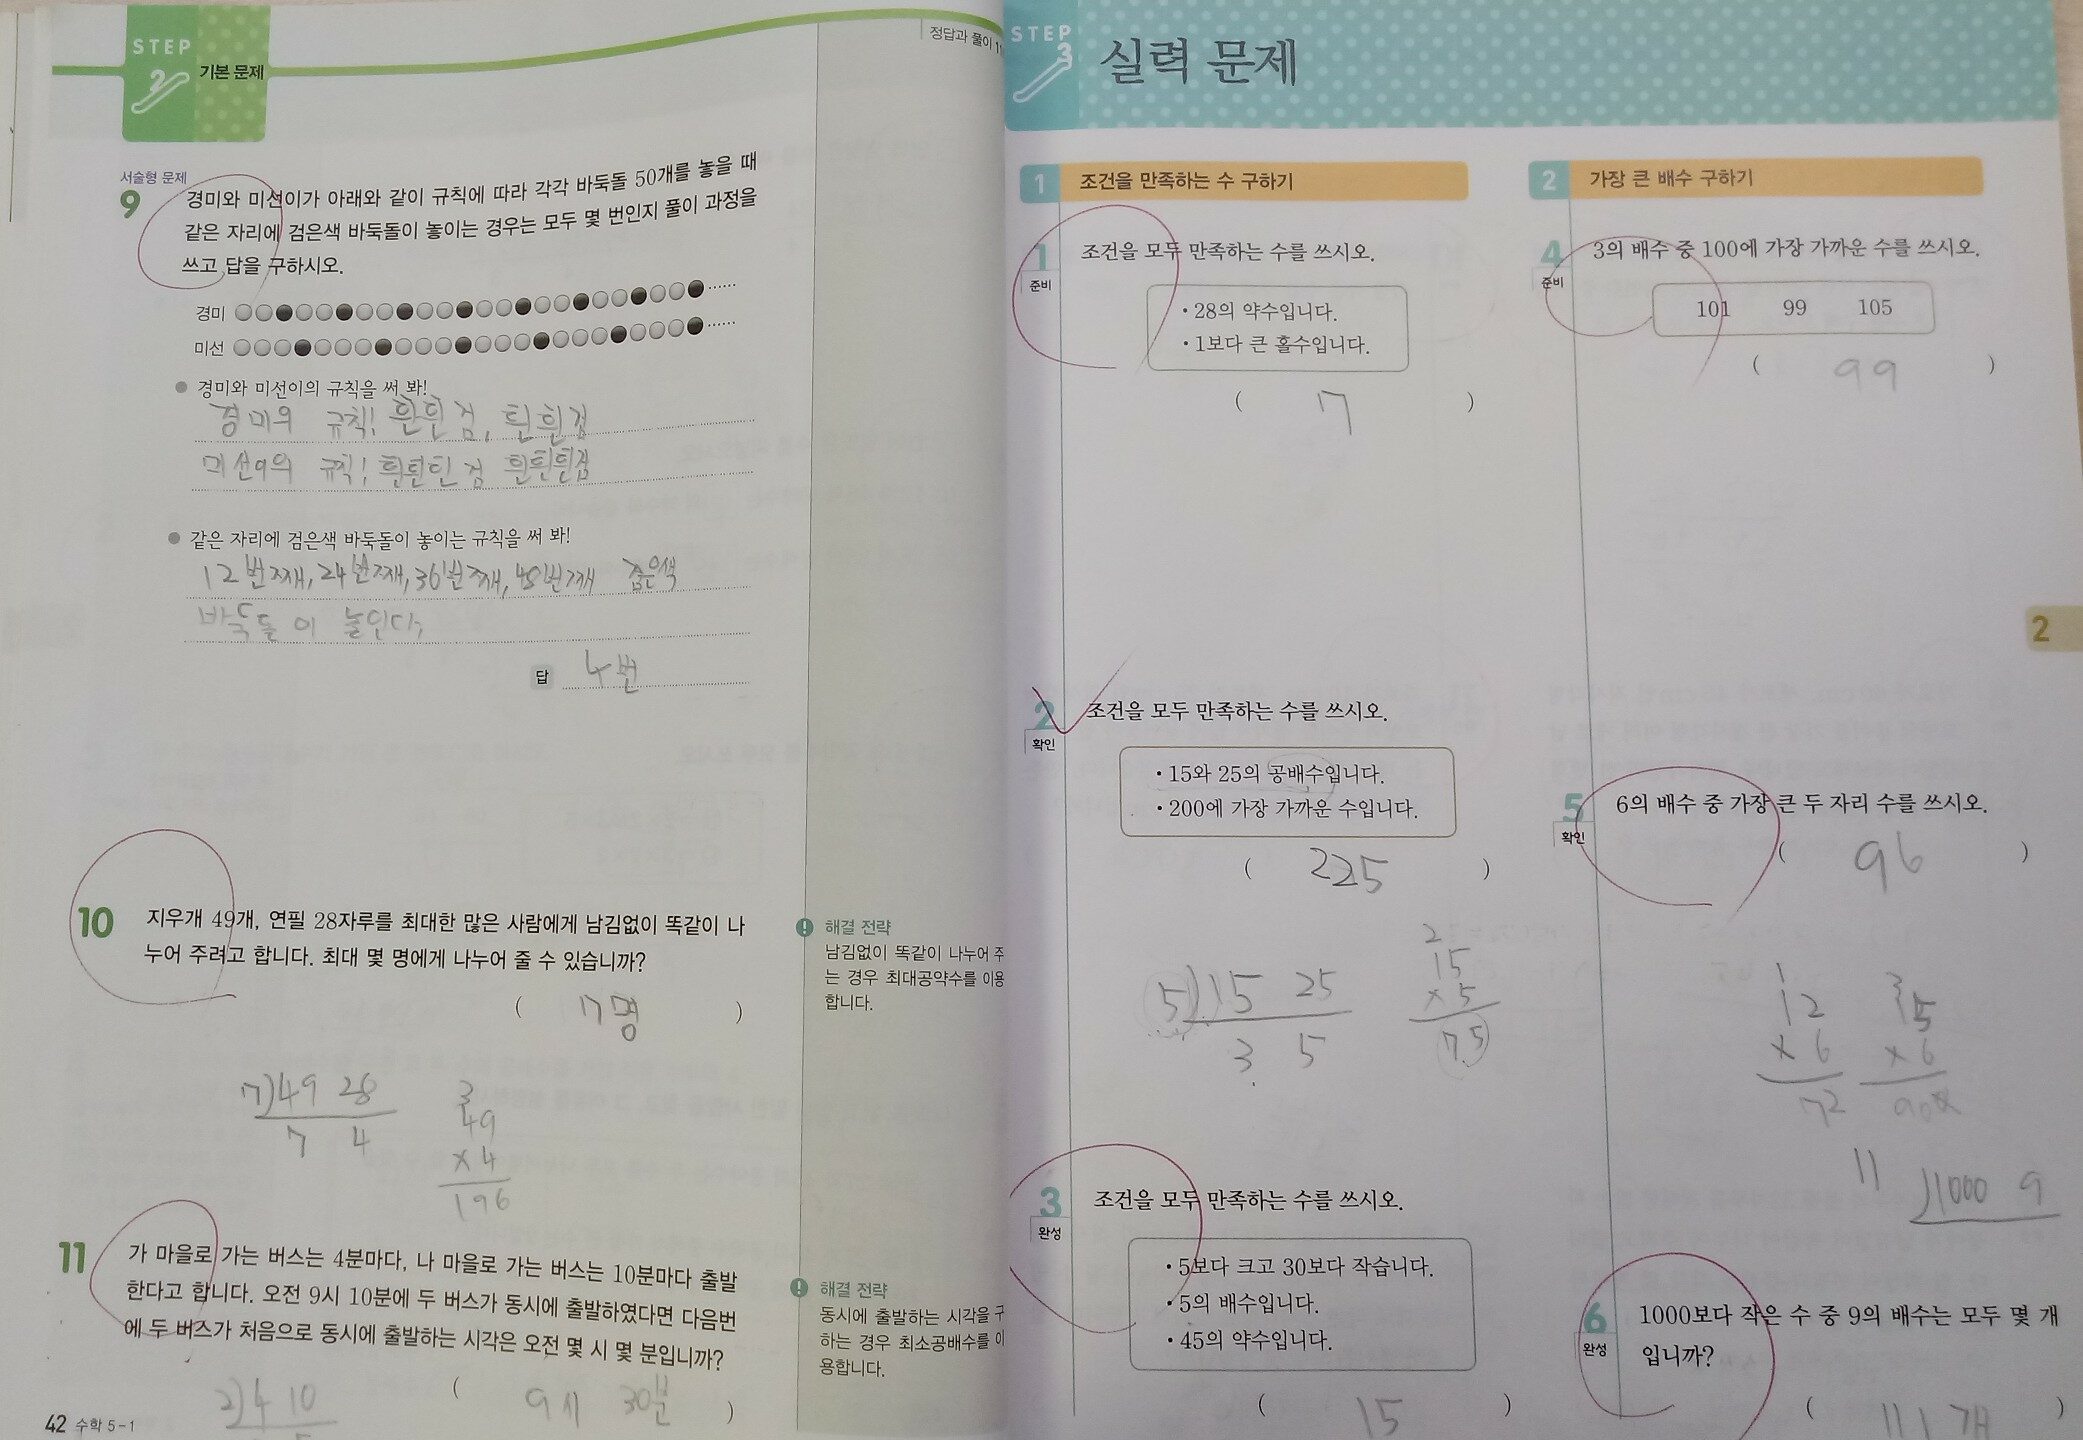 STEP
2
기본 문제
정답과 풀이 11
서술형 문제
9
경미와 미선이가 아래와 같이 규칙에 따라 각각 바둑돌 50개를 놓을 때
같은 자리에 검은색 바둑돌이 놓이는 경우는 모두 몇 번인지 풀이 과정을
쓰고 답을 구하시오.
경미
미선
경미와 미선이의 규칙을 써 봐!
경미의 규칙! 흰흰검, 흰흰검
미선이의 규칙! 흰흰흰검 흰흰흰검
같은 자리에 검은색 바둑돌이 놓이는 규칙을 써 봐!
12번째, 24번째, 36번째, 48번째 검은색
바둑돌이 놓인다,
답 4번
10
지우개 49개, 연필 28자루를 최대한 많은 사람에게 남김없이 똑같이 나
누어 주려고 합니다. 최대 몇 명에게 나누어 줄 수 있습니까?
( 7명 )
7)49 28
7 4
3
49
×4
196
해결 전략
남김없이 똑같이 나누어 주
는 경우 최대공약수를 이용
합니다.
11
가 마을로 가는 버스는 4분마다, 나 마을로 가는 버스는 10분마다 출발
한다고 합니다. 오전 9시 10분에 두 버스가 동시에 출발하였다면 다음번
에 두 버스가 처음으로 동시에 출발하는 시각은 오전 몇 시 몇 분입니까?
( 9시 30분 )
2)4 10
해결 전략
동시에 출발하는 시각을 구
하는 경우 최소공배수를 이
용합니다.
42 수학 5-1
STEP
3
실력 문제
1 조건을 만족하는 수 구하기
1
준비
조건을 모두 만족하는 수를 쓰시오.
· 28의 약수입니다.
· 1보다 큰 홀수입니다.
( 7 )
2
확인
조건을 모두 만족하는 수를 쓰시오.
· 15와 25의 공배수입니다.
· 200에 가장 가까운 수입니다.
( 225 )
5)15 25
3 5
2
15
×5
75
3
완성
조건을 모두 만족하는 수를 쓰시오.
· 5보다 크고 30보다 작습니다.
· 5의 배수입니다.
· 45의 약수입니다.
( 15 )
2 가장 큰 배수 구하기
4
준비
3의 배수 중 100에 가장 가까운 수를 쓰시오.
101 99 105
( 99 )
5
확인
6의 배수 중 가장 큰 두 자리 수를 쓰시오.
( 96 )
1
12
×6
72
3
15
×6
90
11
)1000 9
6
완성
1000보다 작은 수 중 9의 배수는 모두 몇 개
입니까?
( 111개 )
2